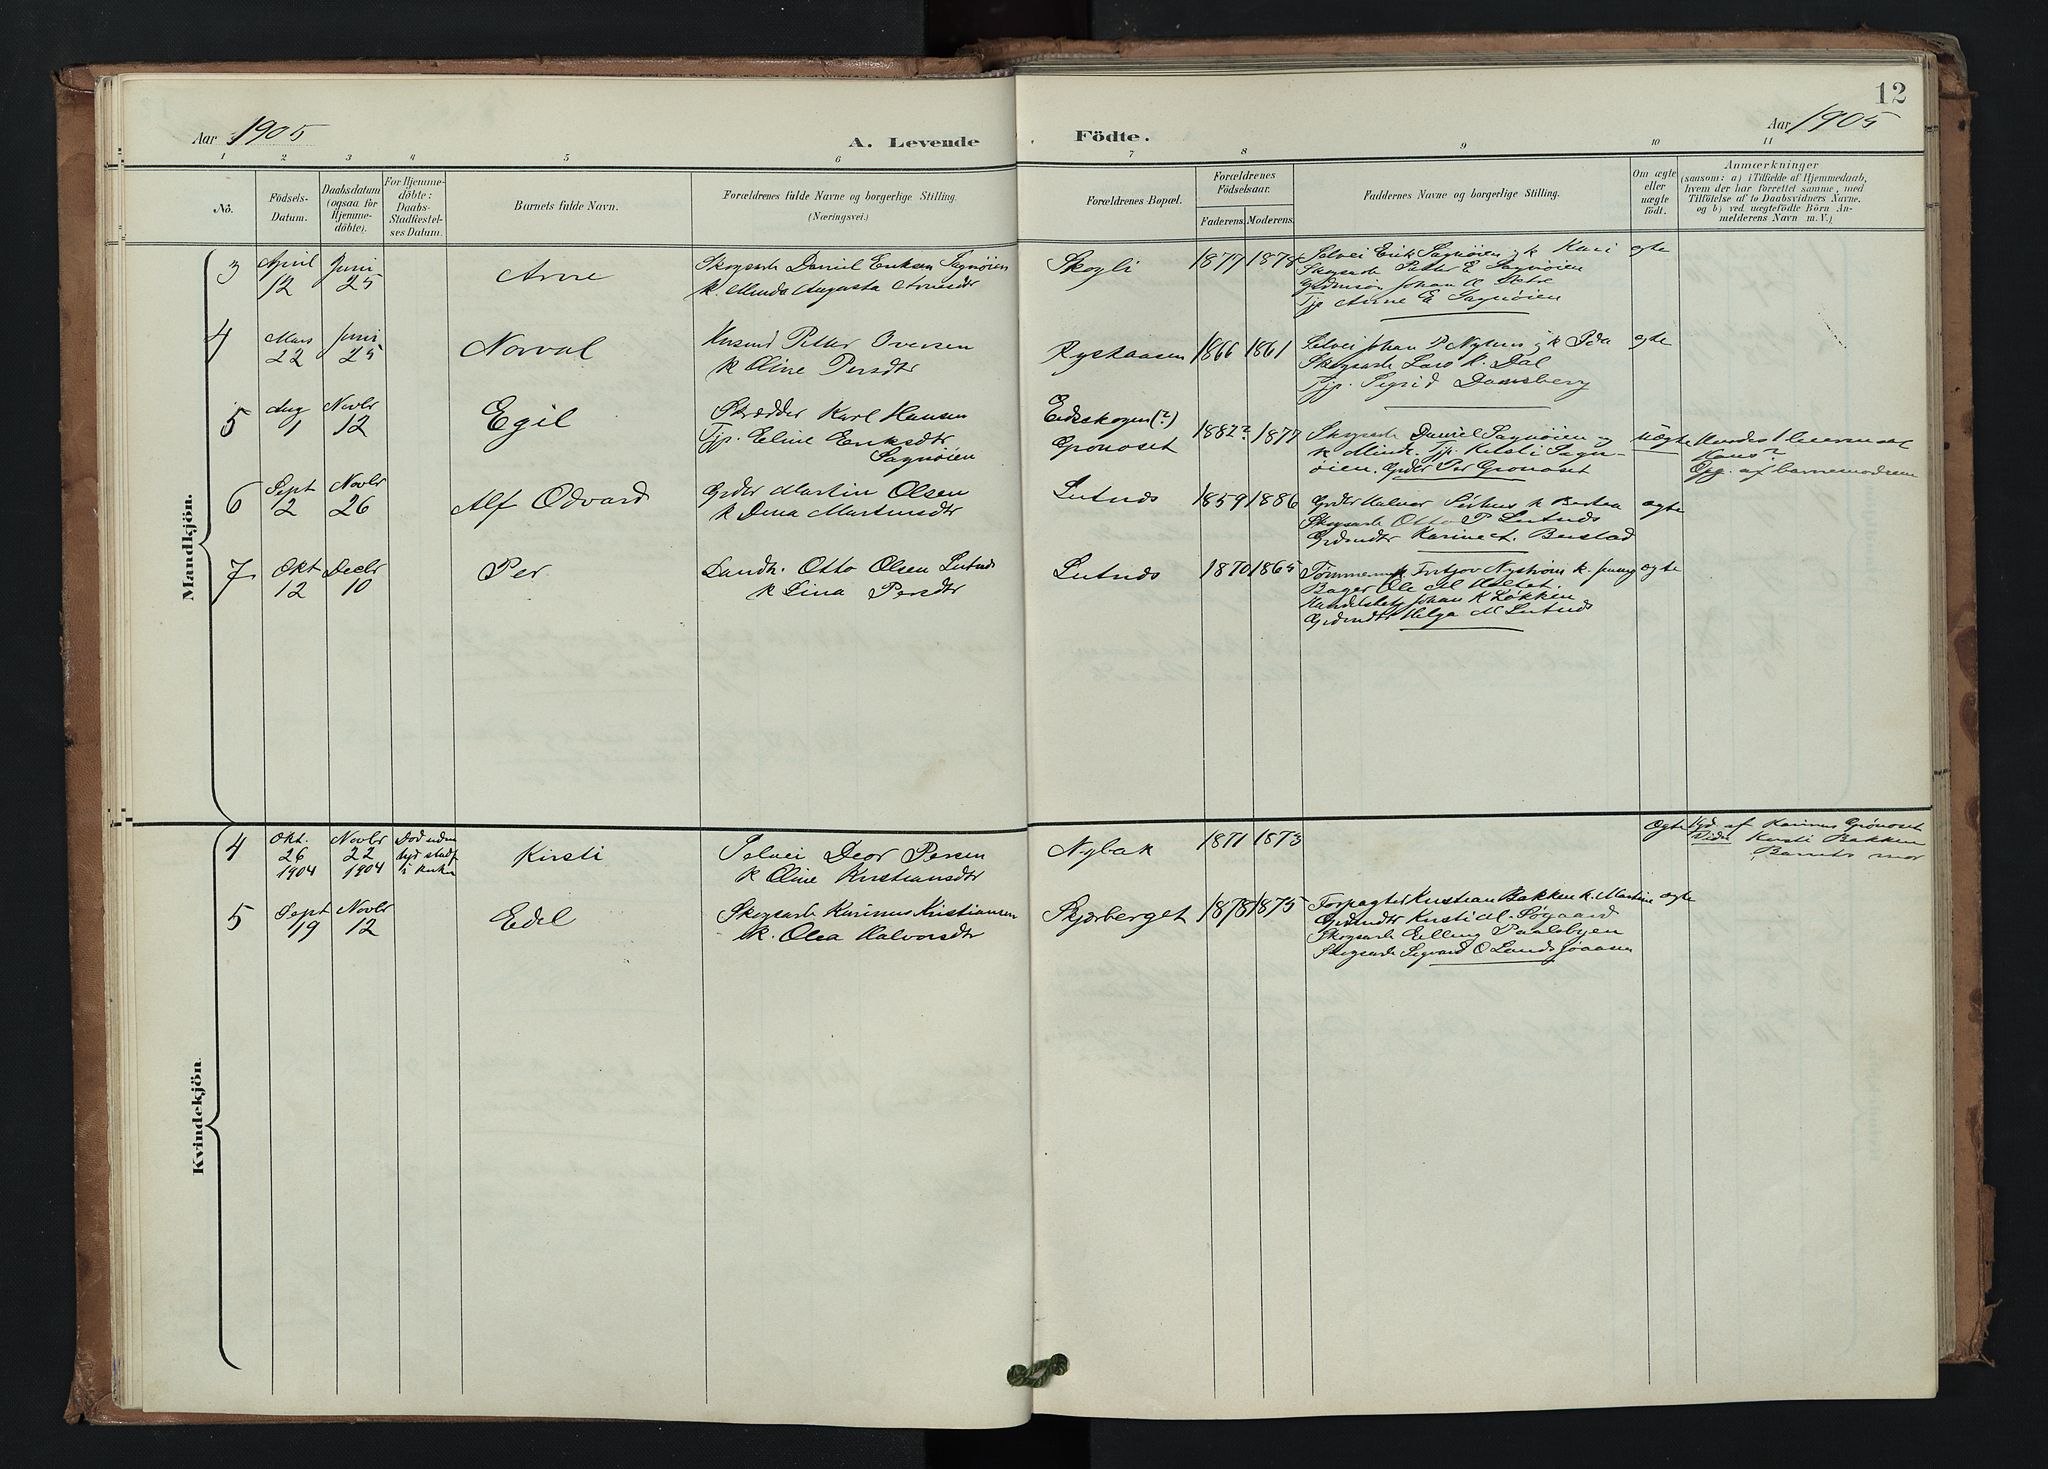 12
Aar 1905
A. Levende
Födte.
Aar 1905
1 2 3 4 5 6 7 8 9 10 11
Nò.
Födsels-
Datum.
Daabsdatum
(ogsaa for
Hjemme-
döbte).
For Hjemme-
döbte:
Daabs-
Stadfæstel-
ses Datum.
Barnets fulde Navn.
Forældrenes fulde Navne og borgerlige Stilling.
(Næringsvei.)
Forældrenes Bopæl.
Forældrenes
Födselsaar.
Faderens. Moderens.
Faddernes Navne og borgerlige Stilling.
Om ægte
eller
uægte
födt.
Anmærkninger
(saasom: a) i Tilfælde af Hjemmedaab,
hvem der har forrettet samme, med
Tilföielse af to Daabsvidners Navne,
og b) ved uægtefödte Börn An-
melderens Navn m. V.)
Mandkjön.
3
April
12
Juni
25
Arne
Skogsarb Daniel Eriksen Sagnøien
k. Minda Augusta Arnesdtr
Skogli
1877 1878
Selvei Erik Sagnøien og k Kari
Skogsarb Petter E Sagnøien
Grdmsøn Johan A Sætre
Tjp Arne E Sagnøien
ægte
4
Mars
22
Juni
25
Norval
Husmd Petter Oversen
k Oline Persdtr
Rystaasen
1866 1861
Selvei Johan P Nyhus og k Ida
Skogsarb Lars K. Dal
Tjp. Sigrid Damsberg
ægte
5
Aug
1
Novbr
12
Egil
Skrædder Karl Hansen
Tjp. Eline Eriksdtr
Sagnøien
Eidsskogen (?)
Grønoset
1882? 1877
Skogsarb Daniel Sagnøien og
k Minda. Tjp. Kirsti Sagn-
øien. Grdbr Per Grønoset
uægte
Opg. af barnemoderen
6
Sept
2
Novbr
26
Alf Odvard
Grdbr Martin Olsen
k Dina Martinsdtr
Lutnds
1859 1886
Grdbr Halvor Sørhus k Bertea
Skogsarb Otto P Lutnds
Grdmdtr Karine A. Bustad
ægte
7
Okt
12
Decbr
10
Per
Landh. Otto Olsen Lutnds
k Lina Persdtr
Lutnds
1870 1865
Tømmerm Fritjov Nystrøm k. Jenny
Bager Ole M Haltet
Handelsbetj Johan K Løkken
Grdmdtr Helga M Lutnds
ægte
Kvindekjön
4
Okt.
26
1904
Novbr
22
1904
Død uden
Kirsti
Selvei Deor Persen
k Oline Kristiansdtr
Nybak
1871 1873
Ægte
Hjd af Karinus Grønoset
Vidn Kirsti Bakken
Barnets mor
5
Sept
19
Novbr
12
Edel
Skogsarb Karinus Kristiansen
k. Olea Halvorsdtr
Skjærberget
1878 1875
Forpagter Kristian Bakken k. Martine
Grdmdtr Kirsti M. Søgaard
Skogsarb Elling Paalsbyen
Skogsarb Sigvard O Landsjøaasen
ægte